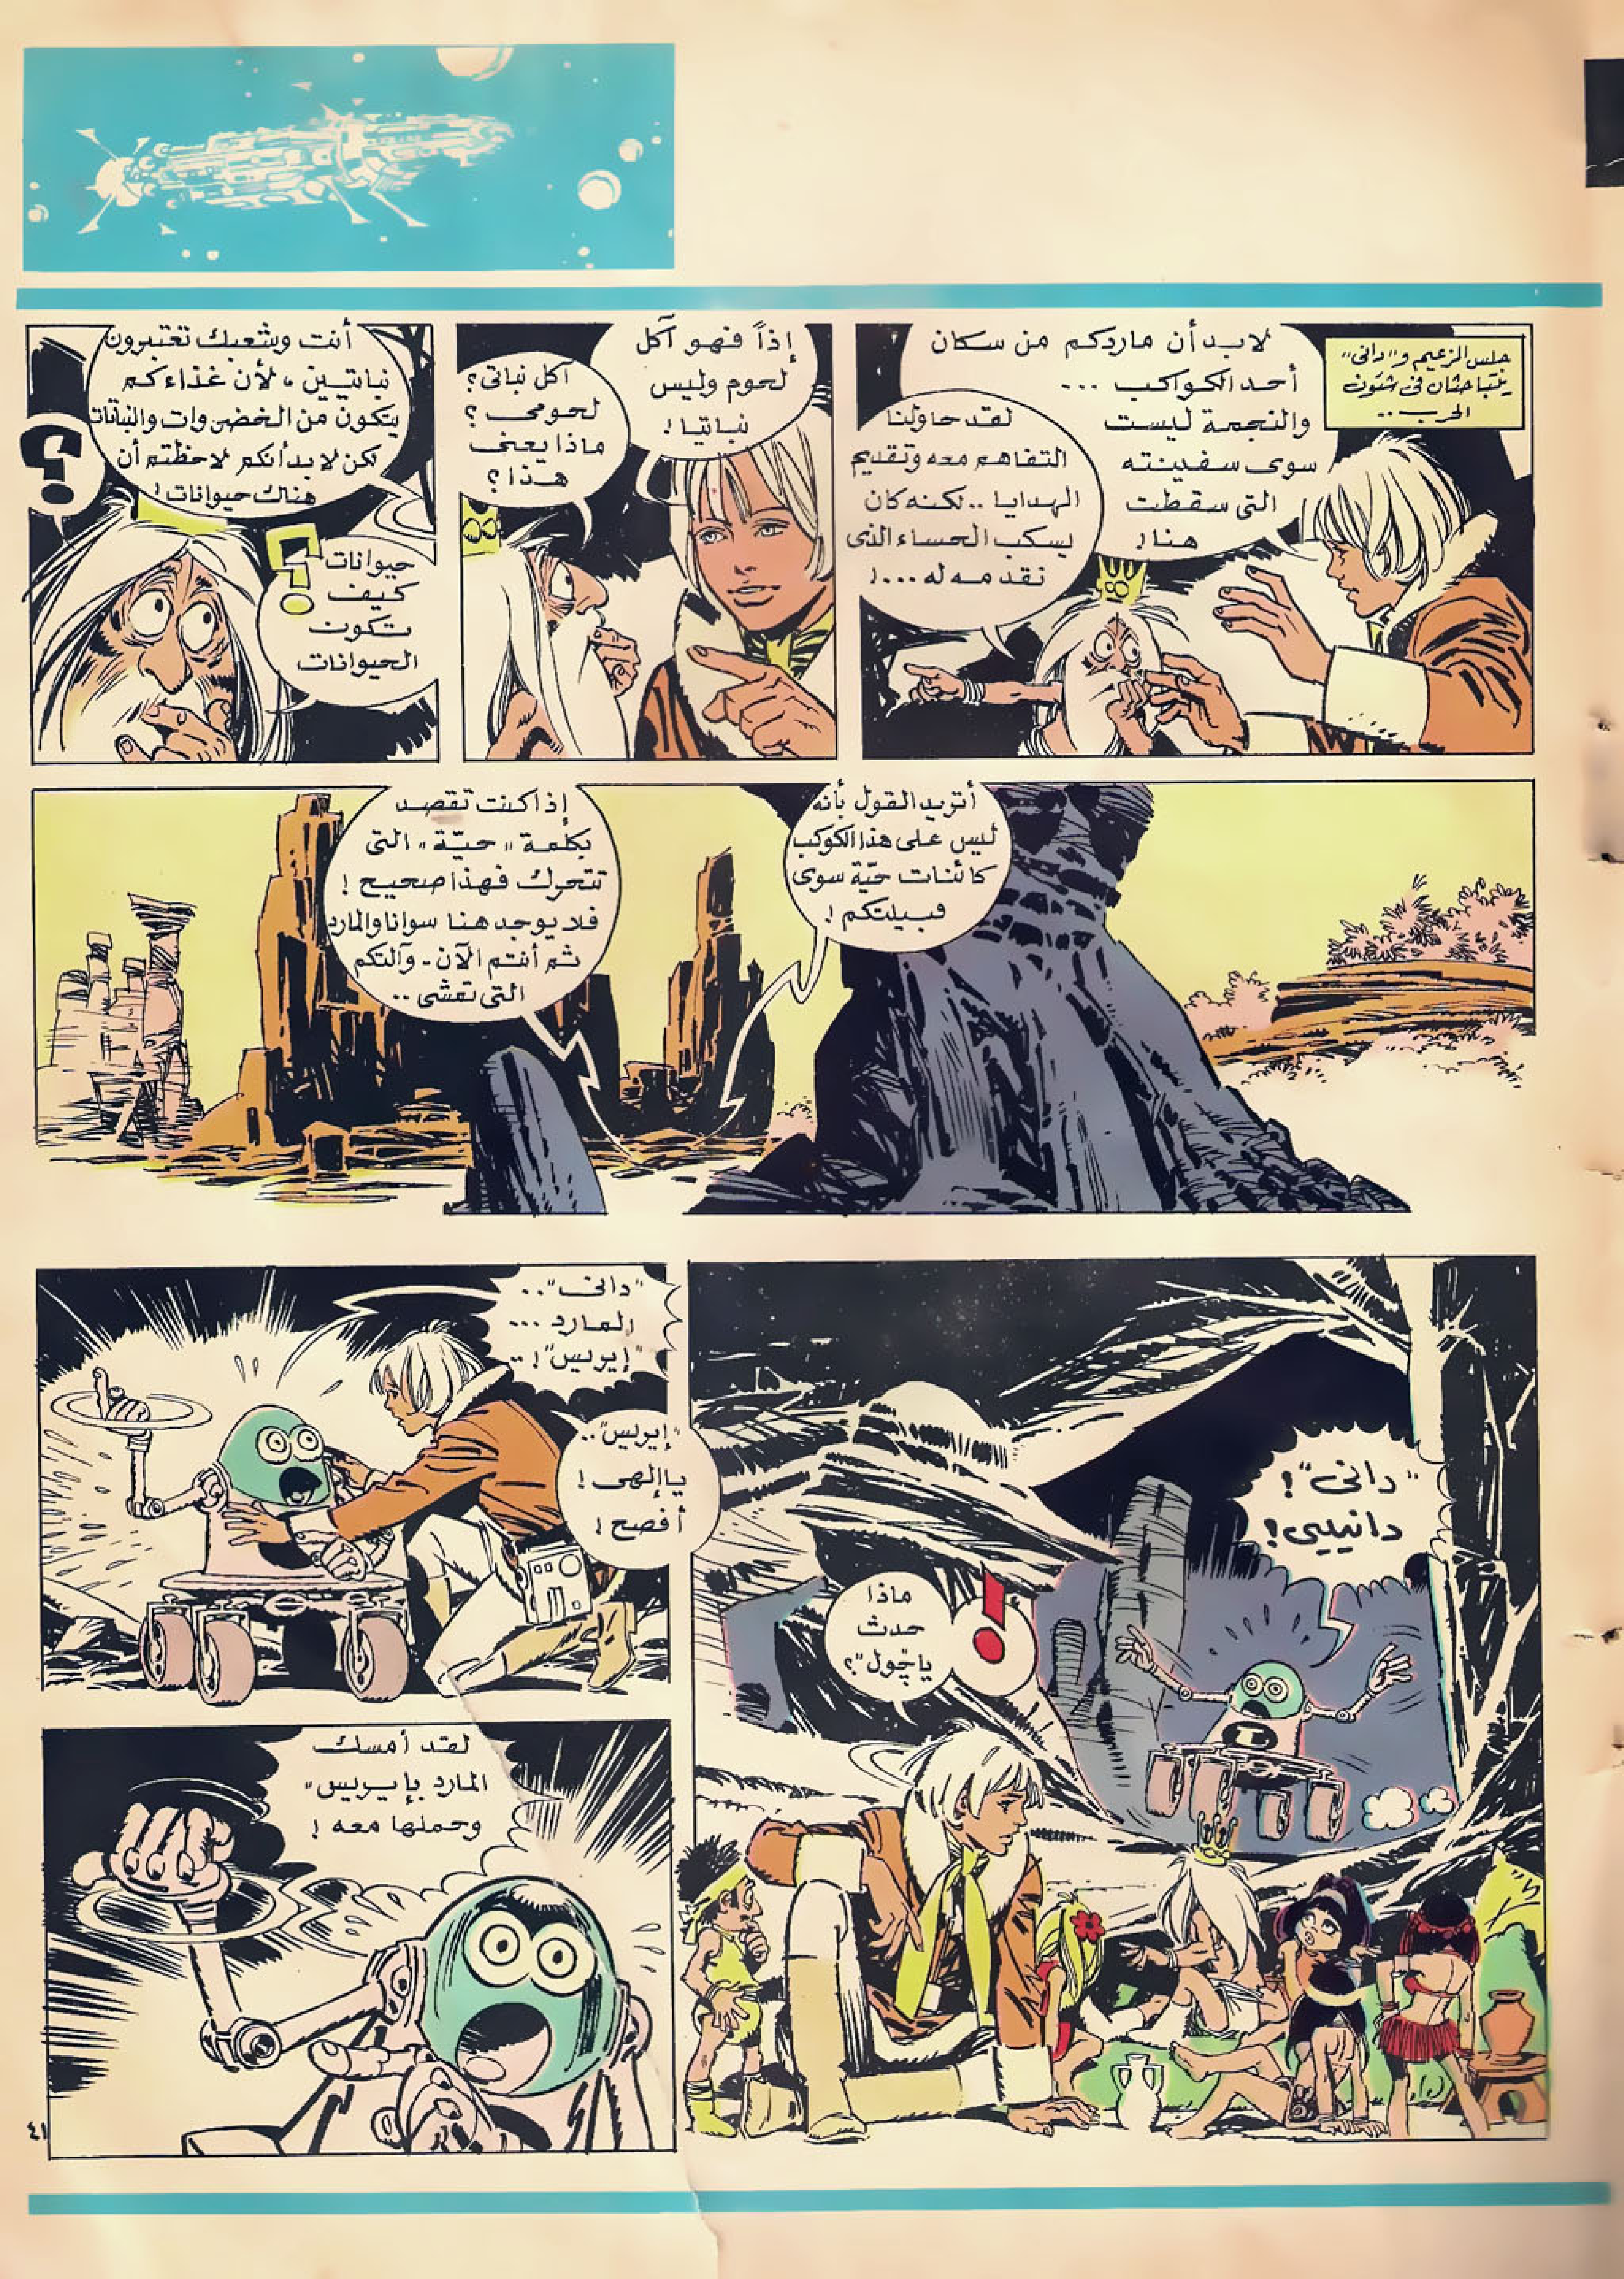 جلس الزعيم و"دانى"
يتباحثان فى شئون
الحرب ..
لابد أن ماردكم من سكان
أحد الكواكب ...
والنجمة ليست
سوى سفينته
التى سقطت
هنا!
لقد حاولنا
التفاهم معه وتقديم
الهدايا .. لكنه كان
يسكب الحساء الذى
نقدمه له ...!
إذاً فهو آكل
لحوم وليس
نباتيا!
آكل نباتى؟
لحومى؟
ماذا يعنى
هذا؟
أنت وشعبك تعتبرون
نباتيين، لأن غذاءكم
يتكون من الخضروات والنباتات
لكن لابد أنكم لاحظتم أن
هناك حيوانات!
؟
حيوانات؟
كيف
تكون
الحيوانات
أتريد القول بأنه
ليس على هذا الكوكب
كائنات حيّة سوى
قبيلتكم!
إذا كنت تقصد
بكلمة "حيّة" التى
تتحرك فهذا صحيح!
فلا يوجد هنا سوانا والمارد
ثم أنتم الآن - وآلتكم
التى تمشى ..
"دانى"!
دانييى!
!
ماذا
حدث
يا چول"؟
"دانى" ..
المارد ...
"إيريس"! ..
"إيريس" ..
يا إلهى!
أفصح!
لقد أمسك
المارد بإيريس"
وحملها معه!
٤١